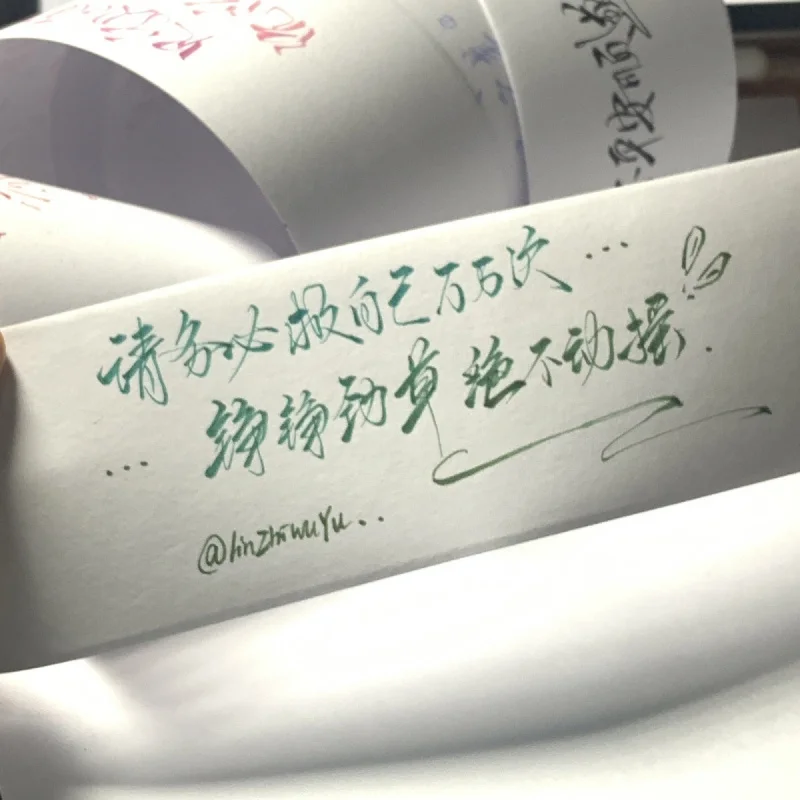 请务必救自己万万次…
…铮铮劲草 绝不动摇.
@linzhiwuYu..